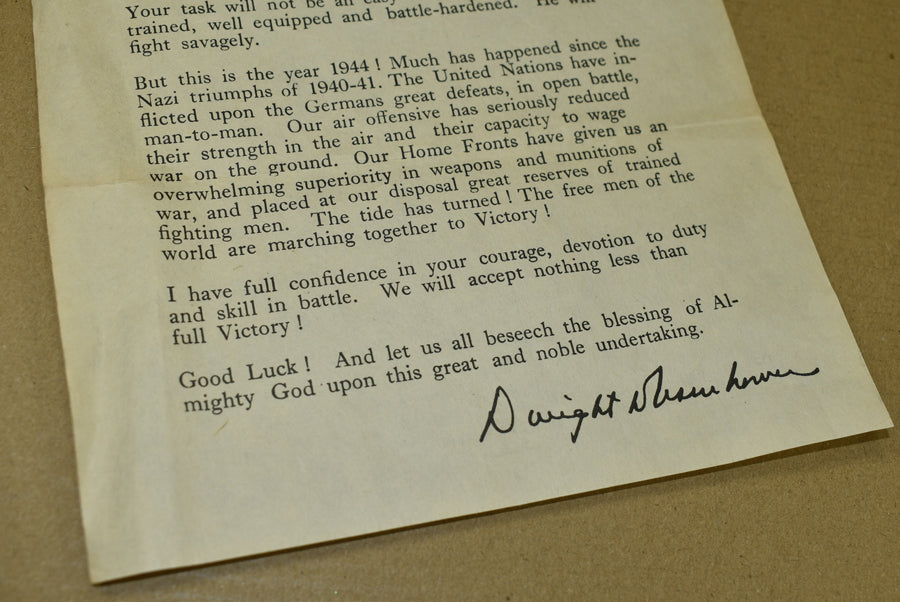 Your task will not be an easy
trained, well equipped and battle-hardened. He will
fight savagely.
But this is the year 1944 ! Much has happened since the
Nazi triumphs of 1940-41. The United Nations have in-
flicted upon the Germans great defeats, in open battle,
man-to-man. Our air offensive has seriously reduced
their strength in the air and their capacity to wage
war on the ground. Our Home Fronts have given us an
overwhelming superiority in weapons and munitions of
war, and placed at our disposal great reserves of trained
fighting men. The tide has turned ! The free men of the
world are marching together to Victory !
I have full confidence in your courage, devotion to duty
and skill in battle. We will accept nothing less than
full Victory !
Good Luck ! And let us all beseech the blessing of Al-
mighty God upon this great and noble undertaking.
Dwight D Eisenhower